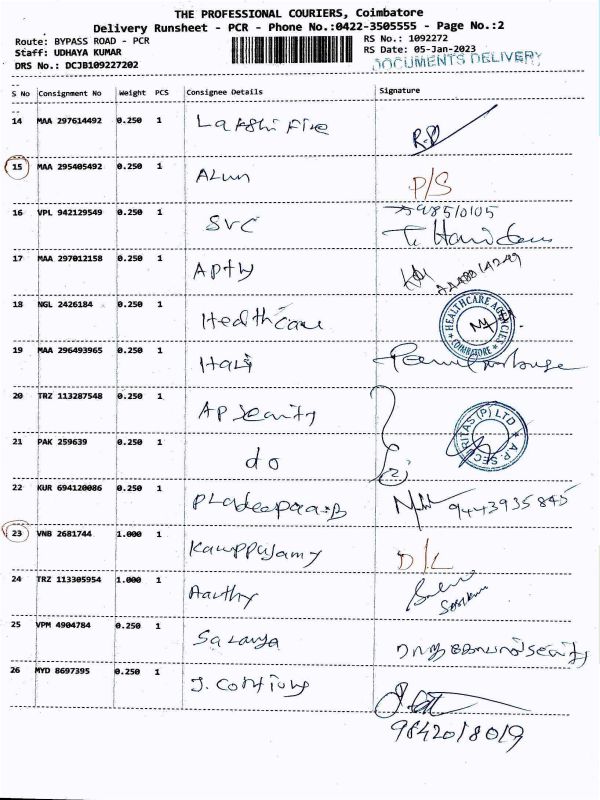 THE PROFESSIONAL COURIERS, Coimbatore
Delivery Runsheet - PCR - Phone No.:0422-3505555 - Page No.:2
Route: BYPASS ROAD - PCR RS No.: 1092272
Staff: UDHAYA KUMAR RS Date: 05-Jan-2023
DRS No.: DCJB109227202 DOCUMENTS DELIVERY
S No Consignment No Weight PCS Consignee Details Signature
14 MAA 297614492 0.250 1 Lakshi Fire
15 MAA 295405492 0.250 1 Arun P/S
16 VPL 942129549 0.250 1 SVC
17 MAA 297012158 0.250 1
18 NGL 2426184 0.250 1 Healthcare HEALTHCARE AGENCIES COIMBATORE
19 MAA 296493965 0.250 1 Hari
20 TRZ 113287548 0.250 1 AP Security
21 PAK 259639 0.250 1 do (2) A.P. SECURITAS (P) LTD
22 KUR 694120086 0.250 1 9443935845
23 VNB 2681744 1.000 1 Karuppusamy D/L
24 TRZ 113305954 1.000 1 Aarthy
25 VPM 4904784 0.250 1 Saranya
26 MYD 8697395 0.250 1
9842018019